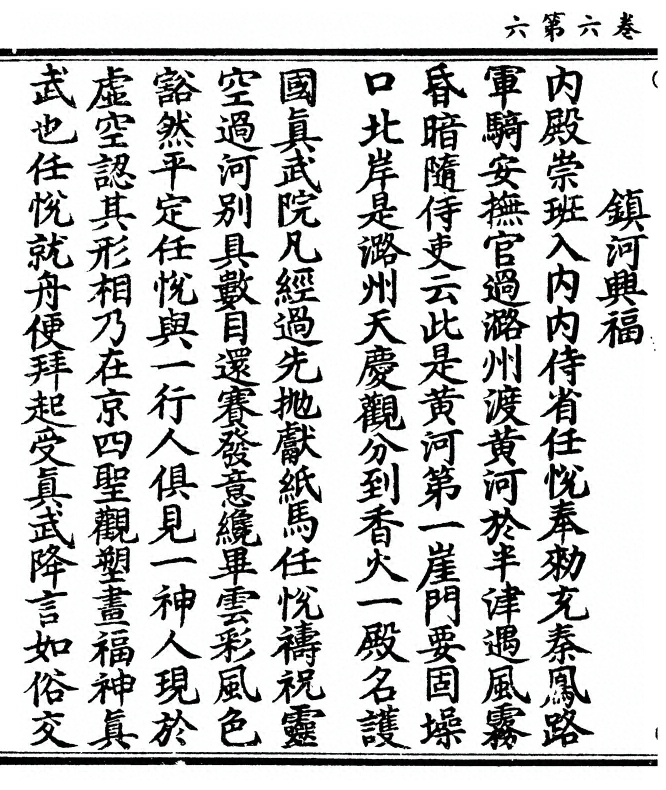 卷六第六
鎮河興福
内殿崇班入内内侍省任悅奉勑充秦鳳路
軍騎安撫官過潞州渡黄河於半津遇風霧
昏暗隨侍吏云此是黄河第一崖門要固堁
口北岸是潞州天慶觀分到香火一殿名護
國眞武院凡經過先抛獻紙馬任悅禱祝靈
空過河别具數目還賽發意纔畢雲彩風色
豁然平定任悅與一行人俱見一神人現於
虛空認其形相乃在京四聖觀塑畫福神眞
武也任悅就舟便拜起受眞武降言如俗交